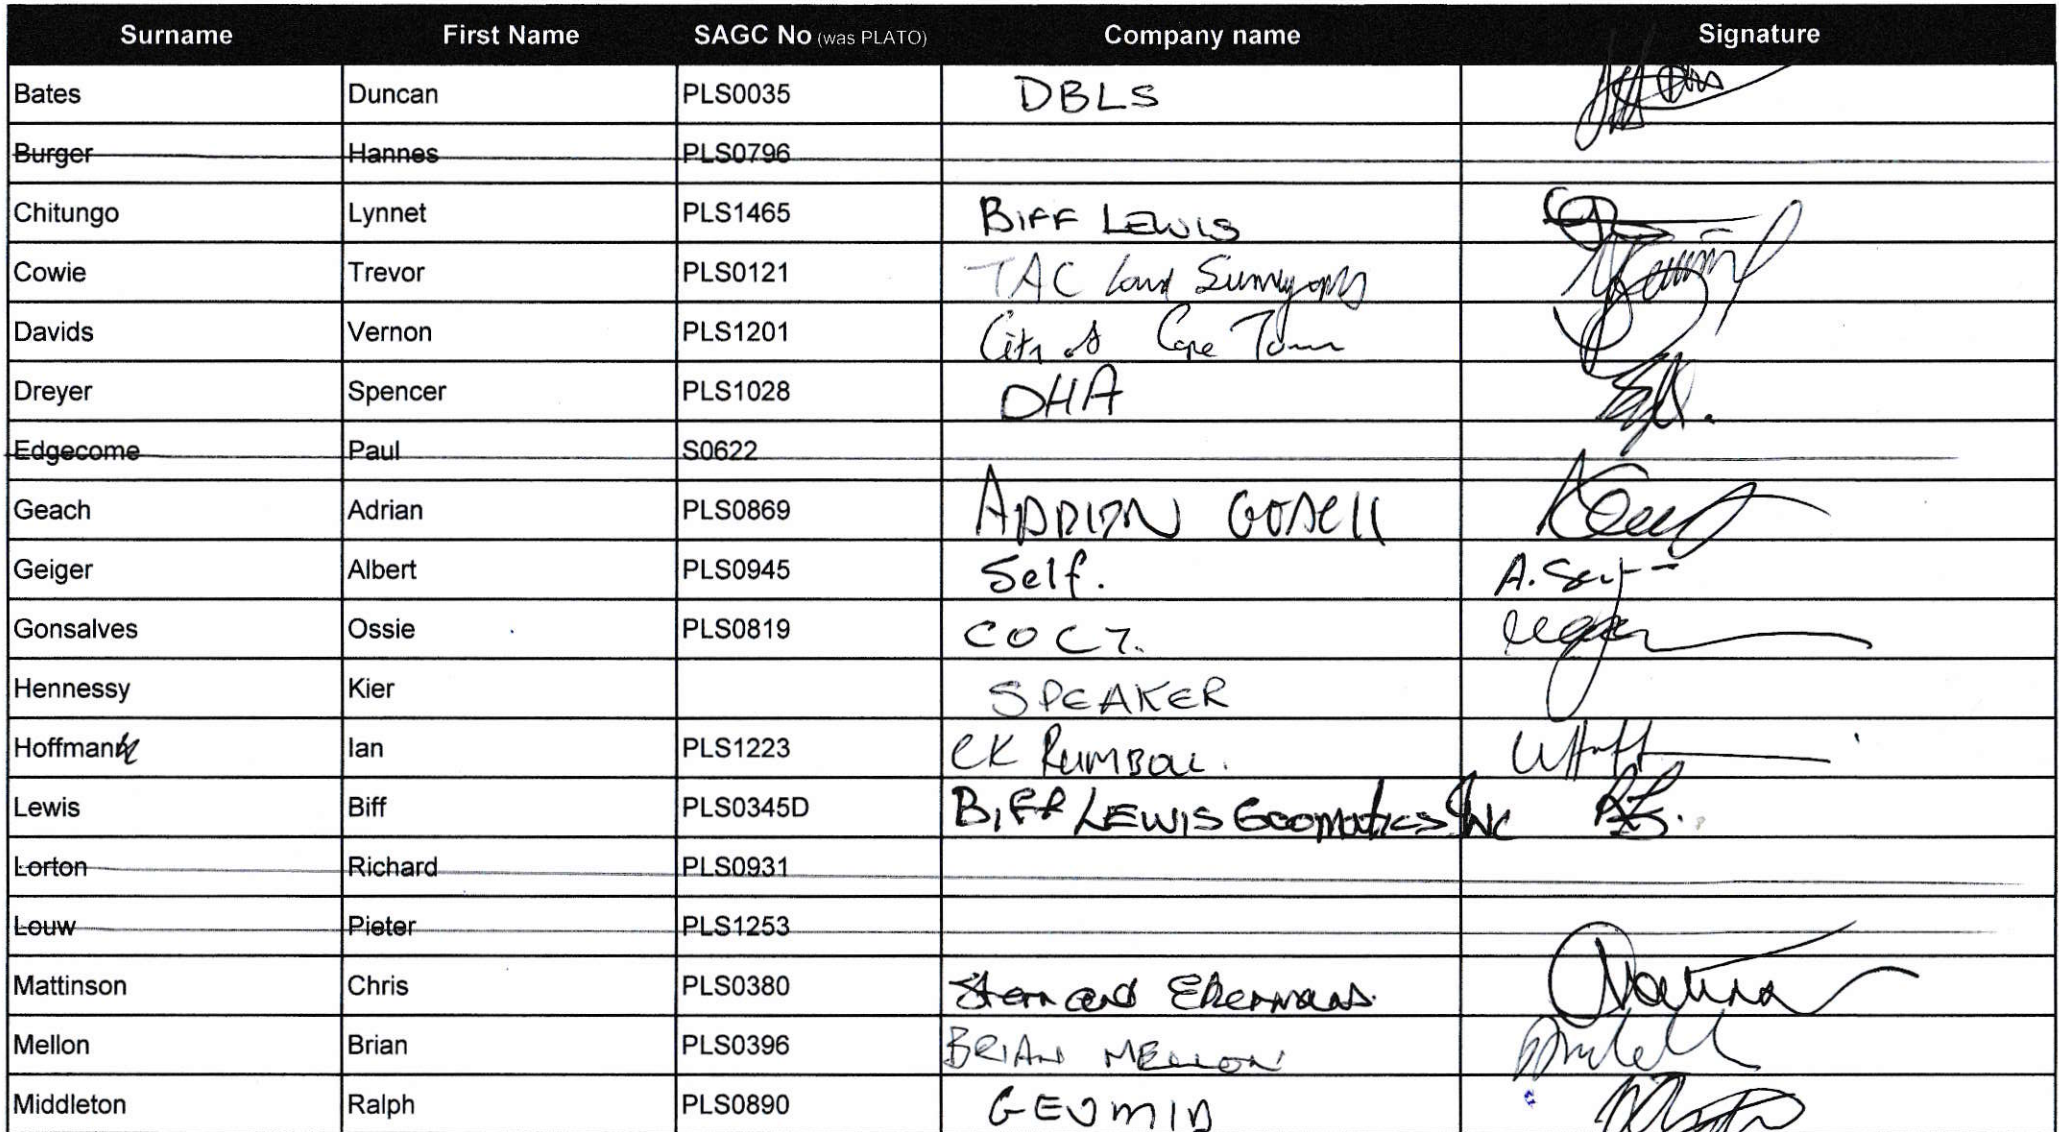 Surname First Name SAGC No (was PLATO) Company name Signature
Bates Duncan PLS0035 DBLS
Burger Hannes PLS0796
Chitungo Lynnet PLS1465 BIFF LEWIS
Cowie Trevor PLS0121 TAC Land Surveyors
Davids Vernon PLS1201 City of Cape Town
Dreyer Spencer PLS1028 DHA
Edgecome Paul S0622
Geach Adrian PLS0869
Geiger Albert PLS0945 Self.
Gonsalves Ossie PLS0819 COCT.
Hennessy Kier SPEAKER
Hoffman Ian PLS1223 CK RUMBOLL.
Lewis Biff PLS0345D BIFF LEWIS Geomatics Inc
Lorton Richard PLS0931
Louw Pieter PLS1253
Mattinson Chris PLS0380 Stern and Ekermans
Mellon Brian PLS0396 BRIAN MELLON
Middleton Ralph PLS0890 GEOMID